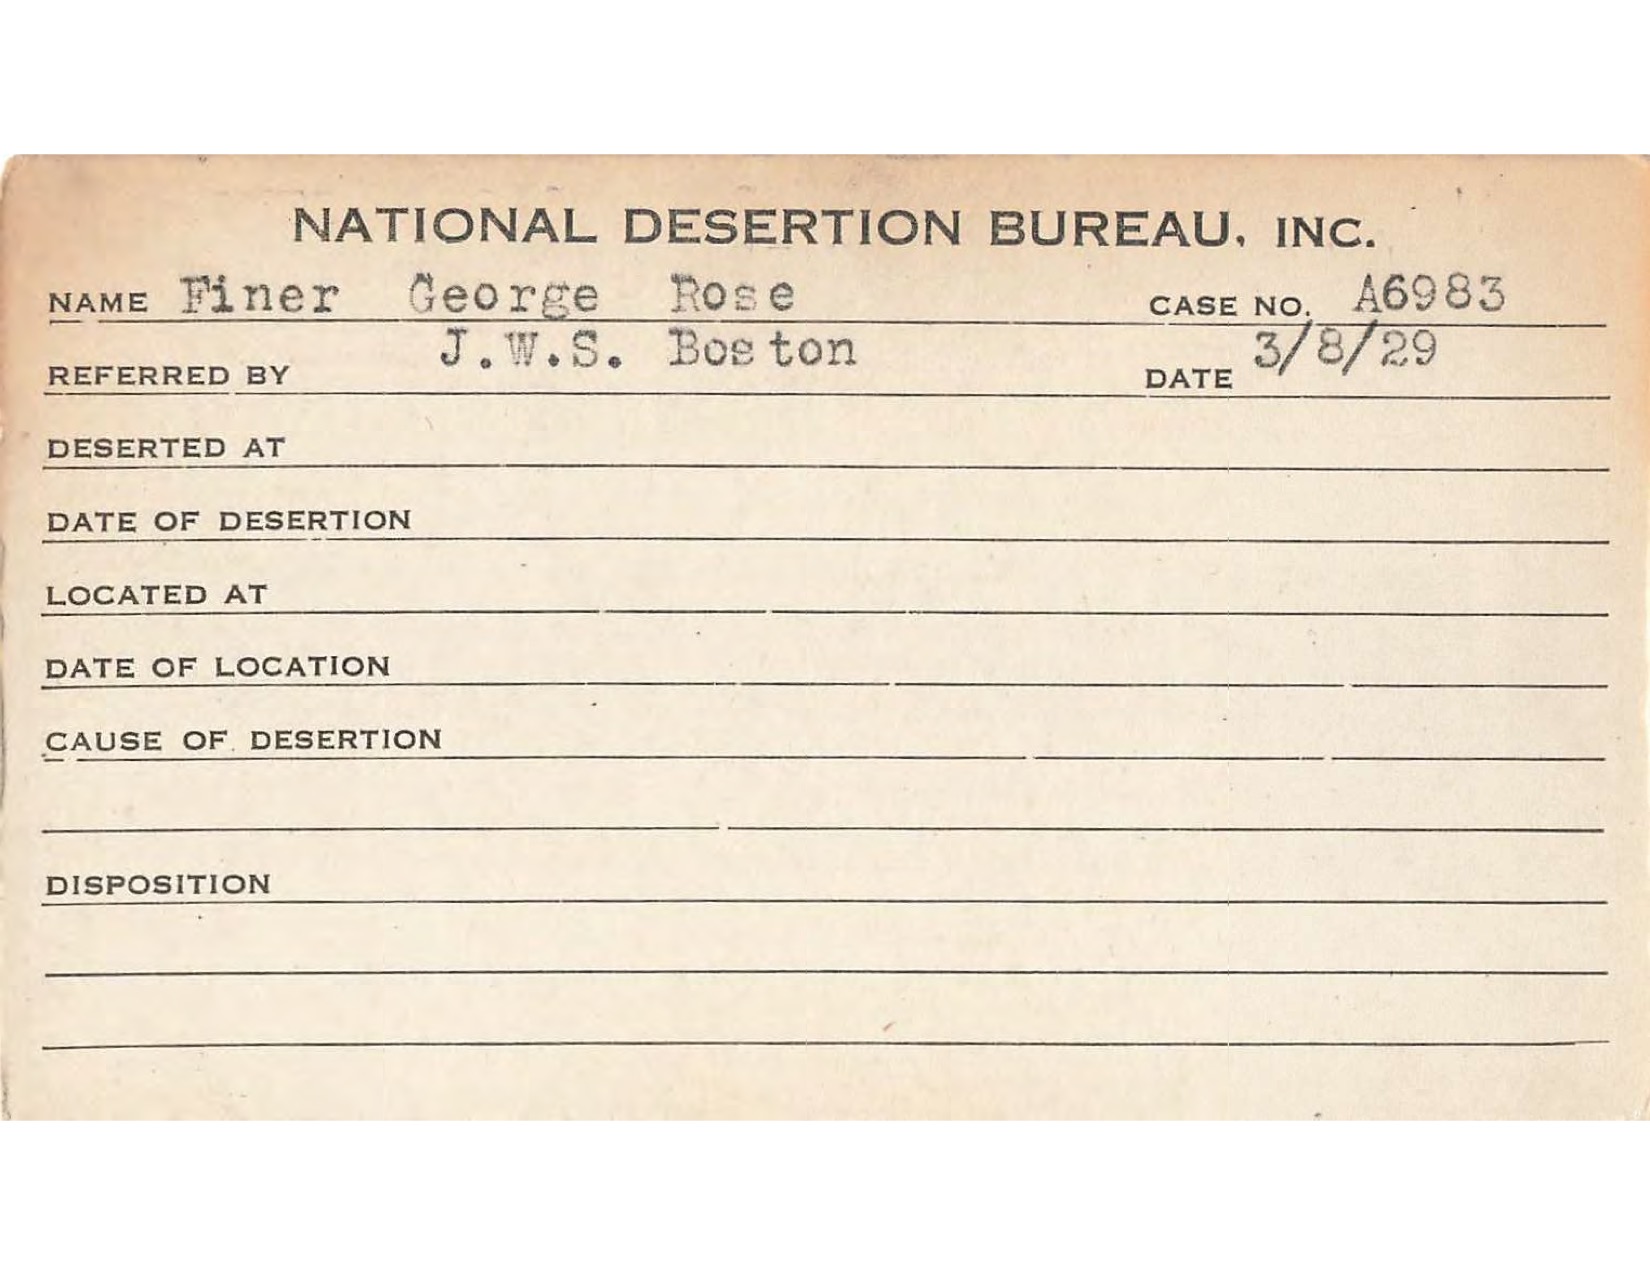 NATIONAL DESERTION BUREAU, INC.
NAME Finer George Rose CASE NO. A6983
REFERRED BY J.W.S. Boston DATE 3/8/29
DESERTED AT
DATE OF DESERTION
LOCATED AT
DATE OF LOCATION
CAUSE OF DESERTION
DISPOSITION